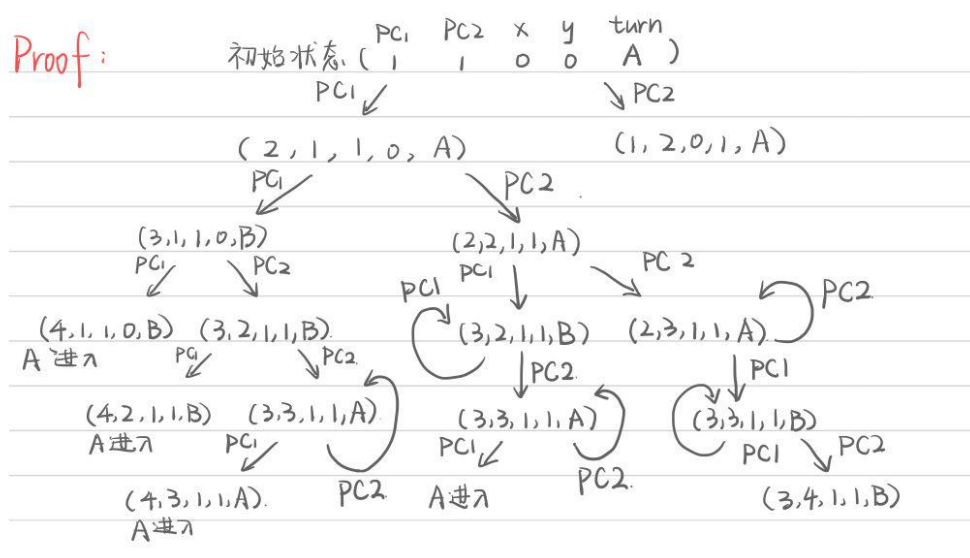 PC1 PC2 x y turn
Proof: 初始状态 ( 1 1 0 0 A )
PC1 PC2
( 2 , 1 , 1 , 0 , A ) (1, 2, 0, 1, A)
PC1 PC2
(3,1,1,0,B) (2,2,1,1,A)
PC1 PC2 PC1 PC2
PC1 PC2
(4,1,1,0,B) (3,2,1,1,B) (3,2,1,1,B) (2,3,1,1,A)
A进入 PC1 PC2 PC2 PC1
(4,2,1,1,B) (3,3,1,1,A) (3,3,1,1,A) (3,3,1,1,B)
A进入 PC1 PC1 PC1 PC2
PC2 PC2
(4,3,1,1,A) A进入 (3,4,1,1,B)
A进入